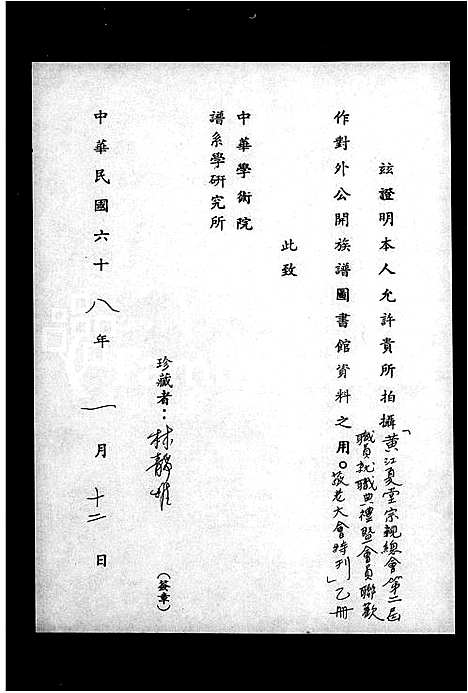 玆證明本人允許貴所拍攝「黃江夏堂宗親總會第二屆
職員就職典禮暨會員聯歡
敬老大會特刊」乙冊
作對外公開族譜圖書館資料之用。
此致
中華學術院
譜系學研究所
珍藏者：林靜雄
（簽章）
中華民國六十八年一月十二日